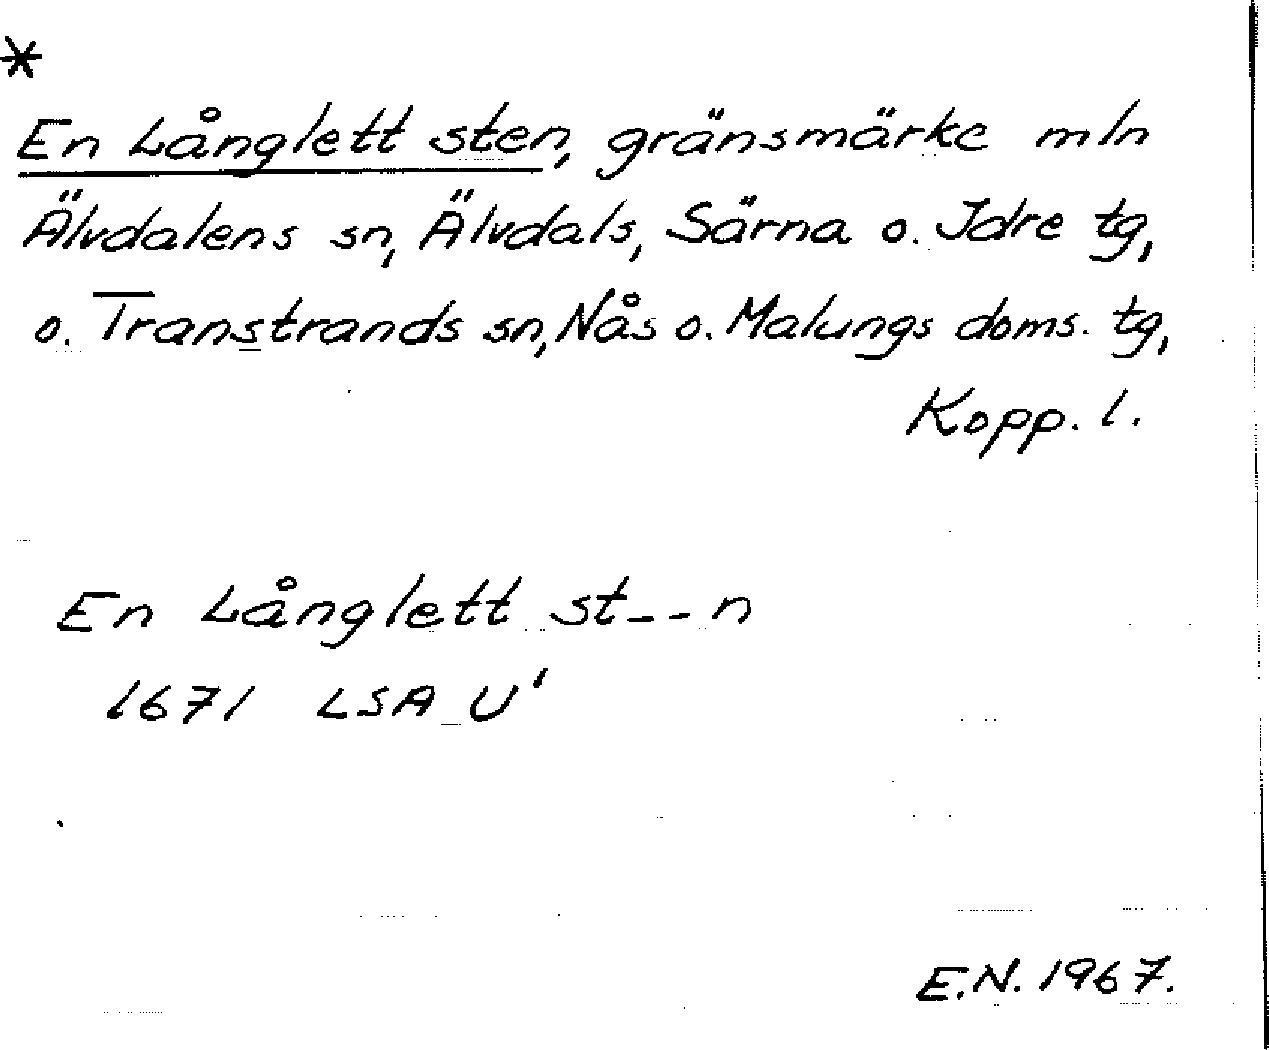 *
En Långlett sten, gränsmärke mln
Älvdalens sn, Älvdals, Särna o. Idre tg,
o. Transtrands sn, Nås o. Malungs doms. tg,
Kopp. l.
En Långlett st--n
1671 LSA U'
E.N. 1967.